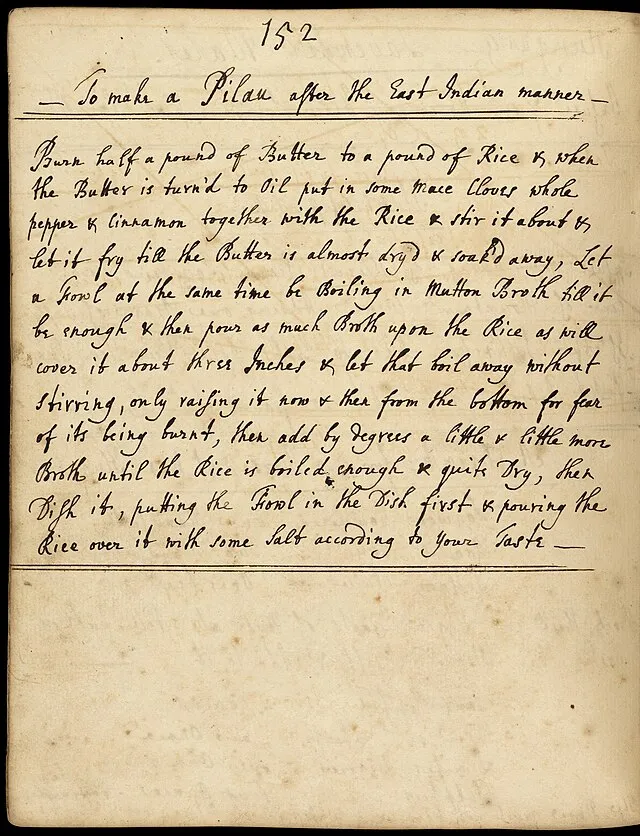 152
— To make a Pilau after the East Indian manner —
Burn half a pound of Butter to a pound of Rice & when
the Butter is turn'd to Oil put in some Mace Cloves whole
pepper & Cinnamon together with the Rice & stir it about &
let it fry till the Butter is almost dry'd & soak'd away, Let
a Fowl at the same time be Boiling in Mutton Broth till it
be enough & then pour as much Broth upon the Rice as will
cover it about three Inches & let that boil away without
stirring, only raising it now & then from the bottom for fear
of its being burnt, then add by degrees a little & little more
Broth until the Rice is boiled enough & quite Dry, then
Dish it, putting the Fowl in the Dish first & pouring the
Rice over it with some Salt according to your Taste —